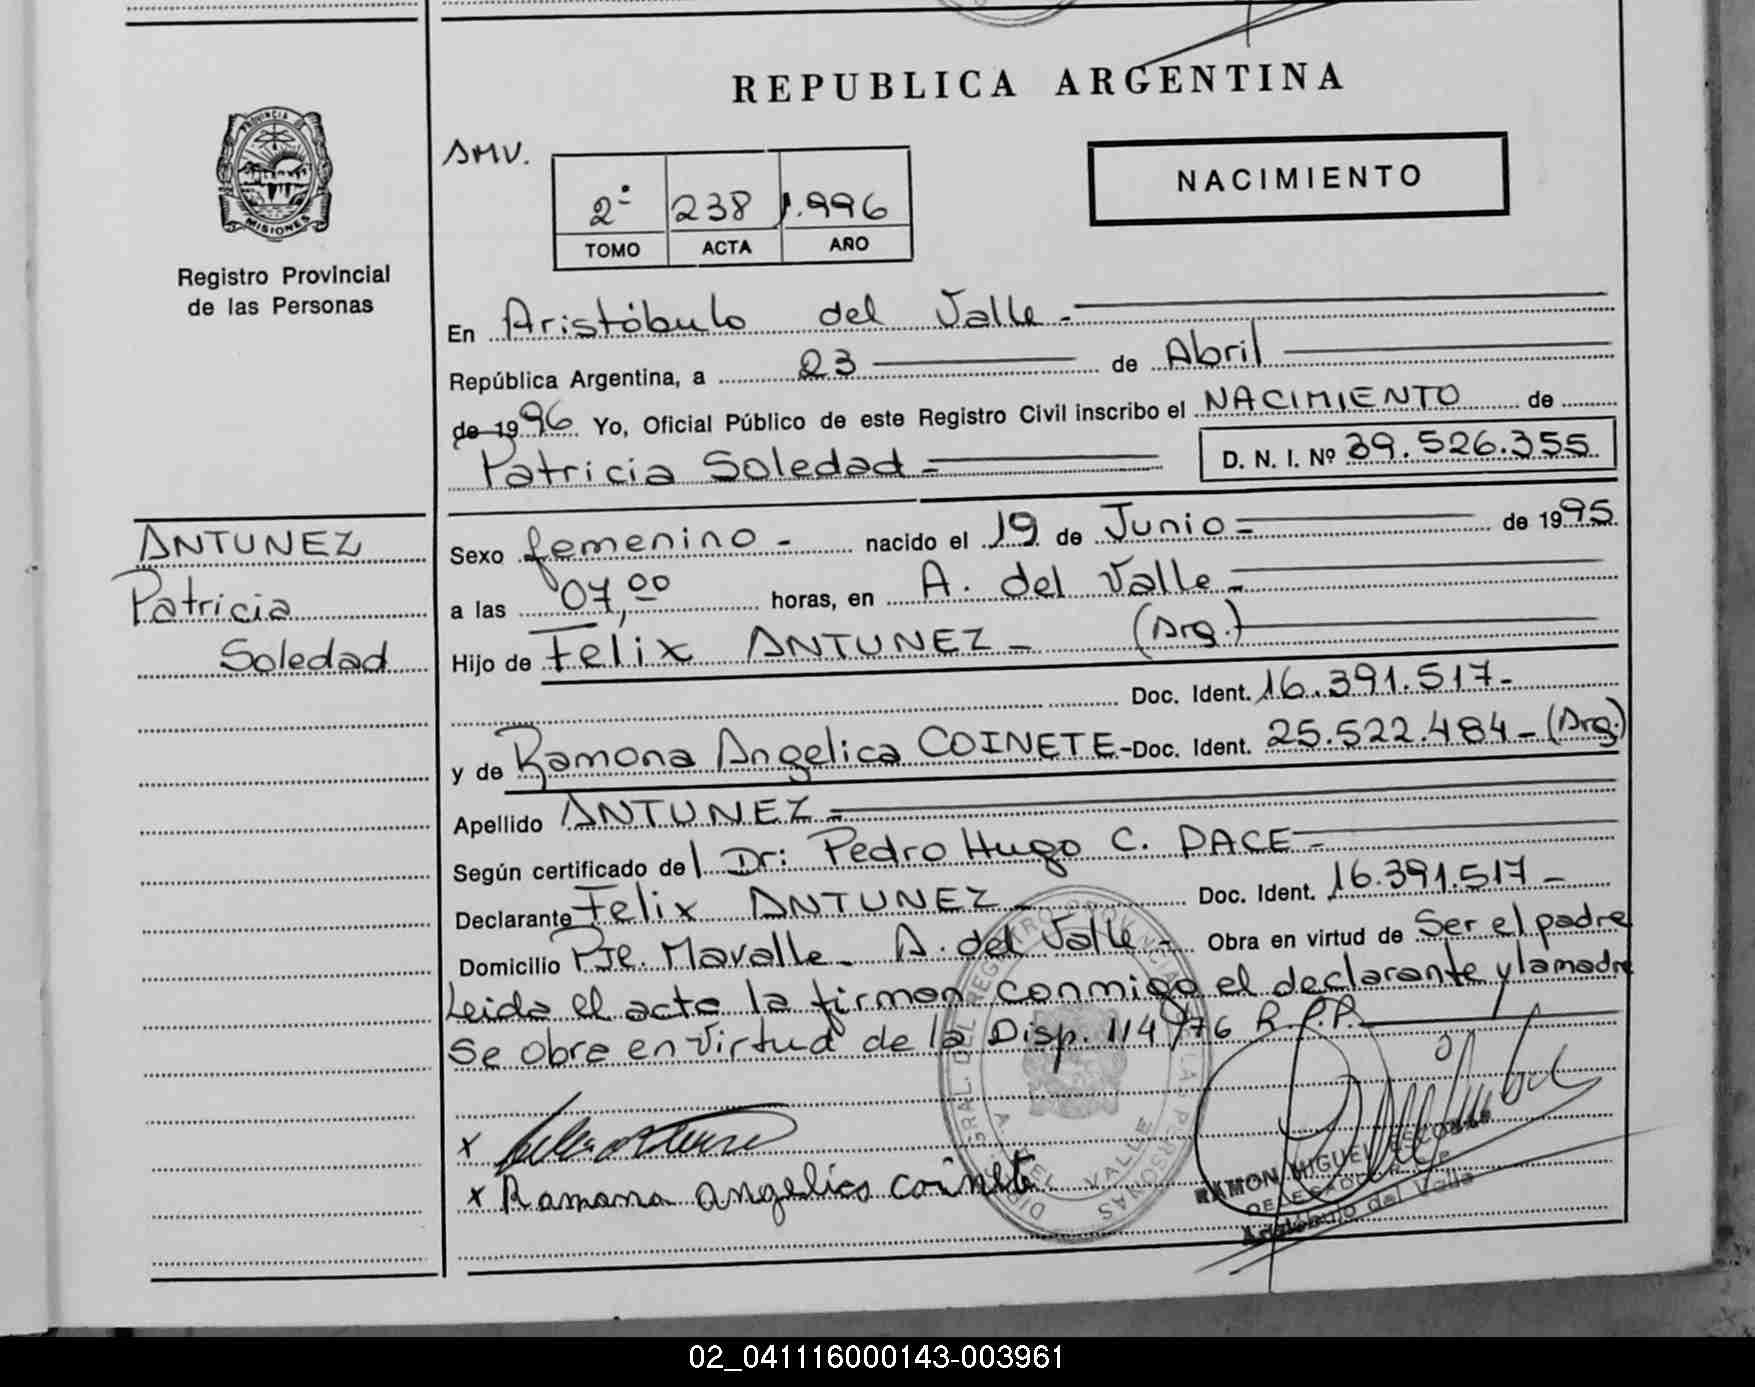 REPUBLICA ARGENTINA
PROVINCIA DE
MISIONES
Registro Provincial
de las Personas
AMV.
2º 238 1.996
TOMO ACTA AÑO
NACIMIENTO
En Aristóbulo del Valle.-
República Argentina, a 23 de Abril
de 1996 Yo, Oficial Público de este Registro Civil inscribo el NACIMIENTO de
Patricia Soledad.- D. N. I. Nº 39.526.355
ANTUNEZ
Patricia
Soledad
Sexo femenino - nacido el 19 de Junio - de 1995
a las 07,00 horas, en A. del Valle.-
Hijo de Felix ANTUNEZ - (Arg.)
Doc. Ident. 16.391.517-
y de Ramona Angelica COINETE - Doc. Ident. 25.522.484 - (Arg.)
Apellido ANTUNEZ -
Según certificado del Dr: Pedro Hugo C. PACE -
Declarante Felix ANTUNEZ - Doc. Ident. 16.391.517 -
Domicilio Pje. Mavalle - A. del Valle - Obra en virtud de Ser el padre
Leida el acta la firman conmigo el declarante y la madre
Se obra en virtud de la Disp. 114/76 R.P.P.
x
x Ramona angelica coinete
DIR. GRAL. DEL REGISTRO PROVINCIAL DE LAS PERSONAS
A. DEL VALLE
RAMON MIGUEL ESCOBAR
DELEGADO R.P.P.
Aristóbulo del Valle
02_041116000143-003961